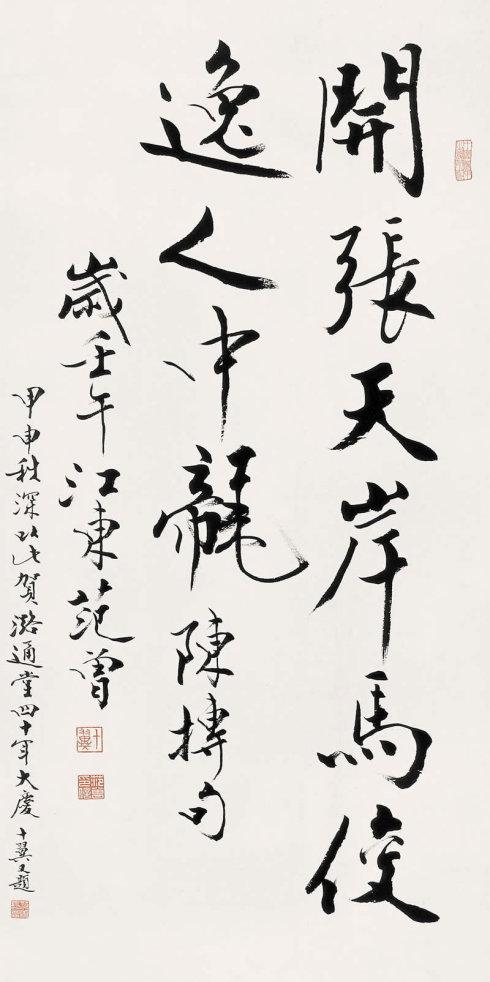 開張天岸馬俊
逸人中龍 陳摶句
歲壬午江東范曾
甲申秋深以此賀潞通堂四十年大慶 十翼又題
十翼